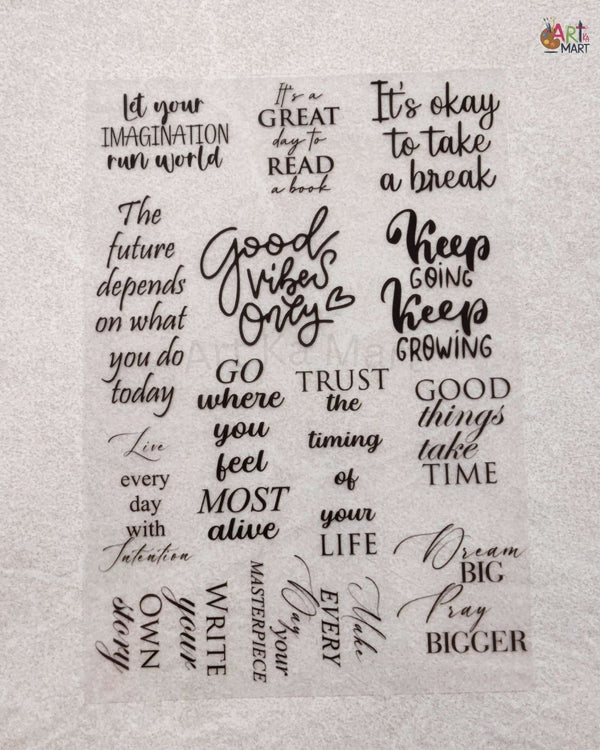 ART Ka
MART
let your
IMAGINATION
run world
It's a
GREAT
day to
READ
a book
It's okay
to take
a break
The
future
depends
on what
you do
today
Good
vibes
Only
Keep
GOING
Keep
GROWING
Art Ka Mart
GO
where
you
feel
MOST
alive
TRUST
the
timing
of
your
LIFE
GOOD
things
take
TIME
Live
every
day
with
Intention
Dream
BIG
Pray
BIGGER
WRITE
your
OWN
story
Make
EVERY
Day
your
MASTERPIECE